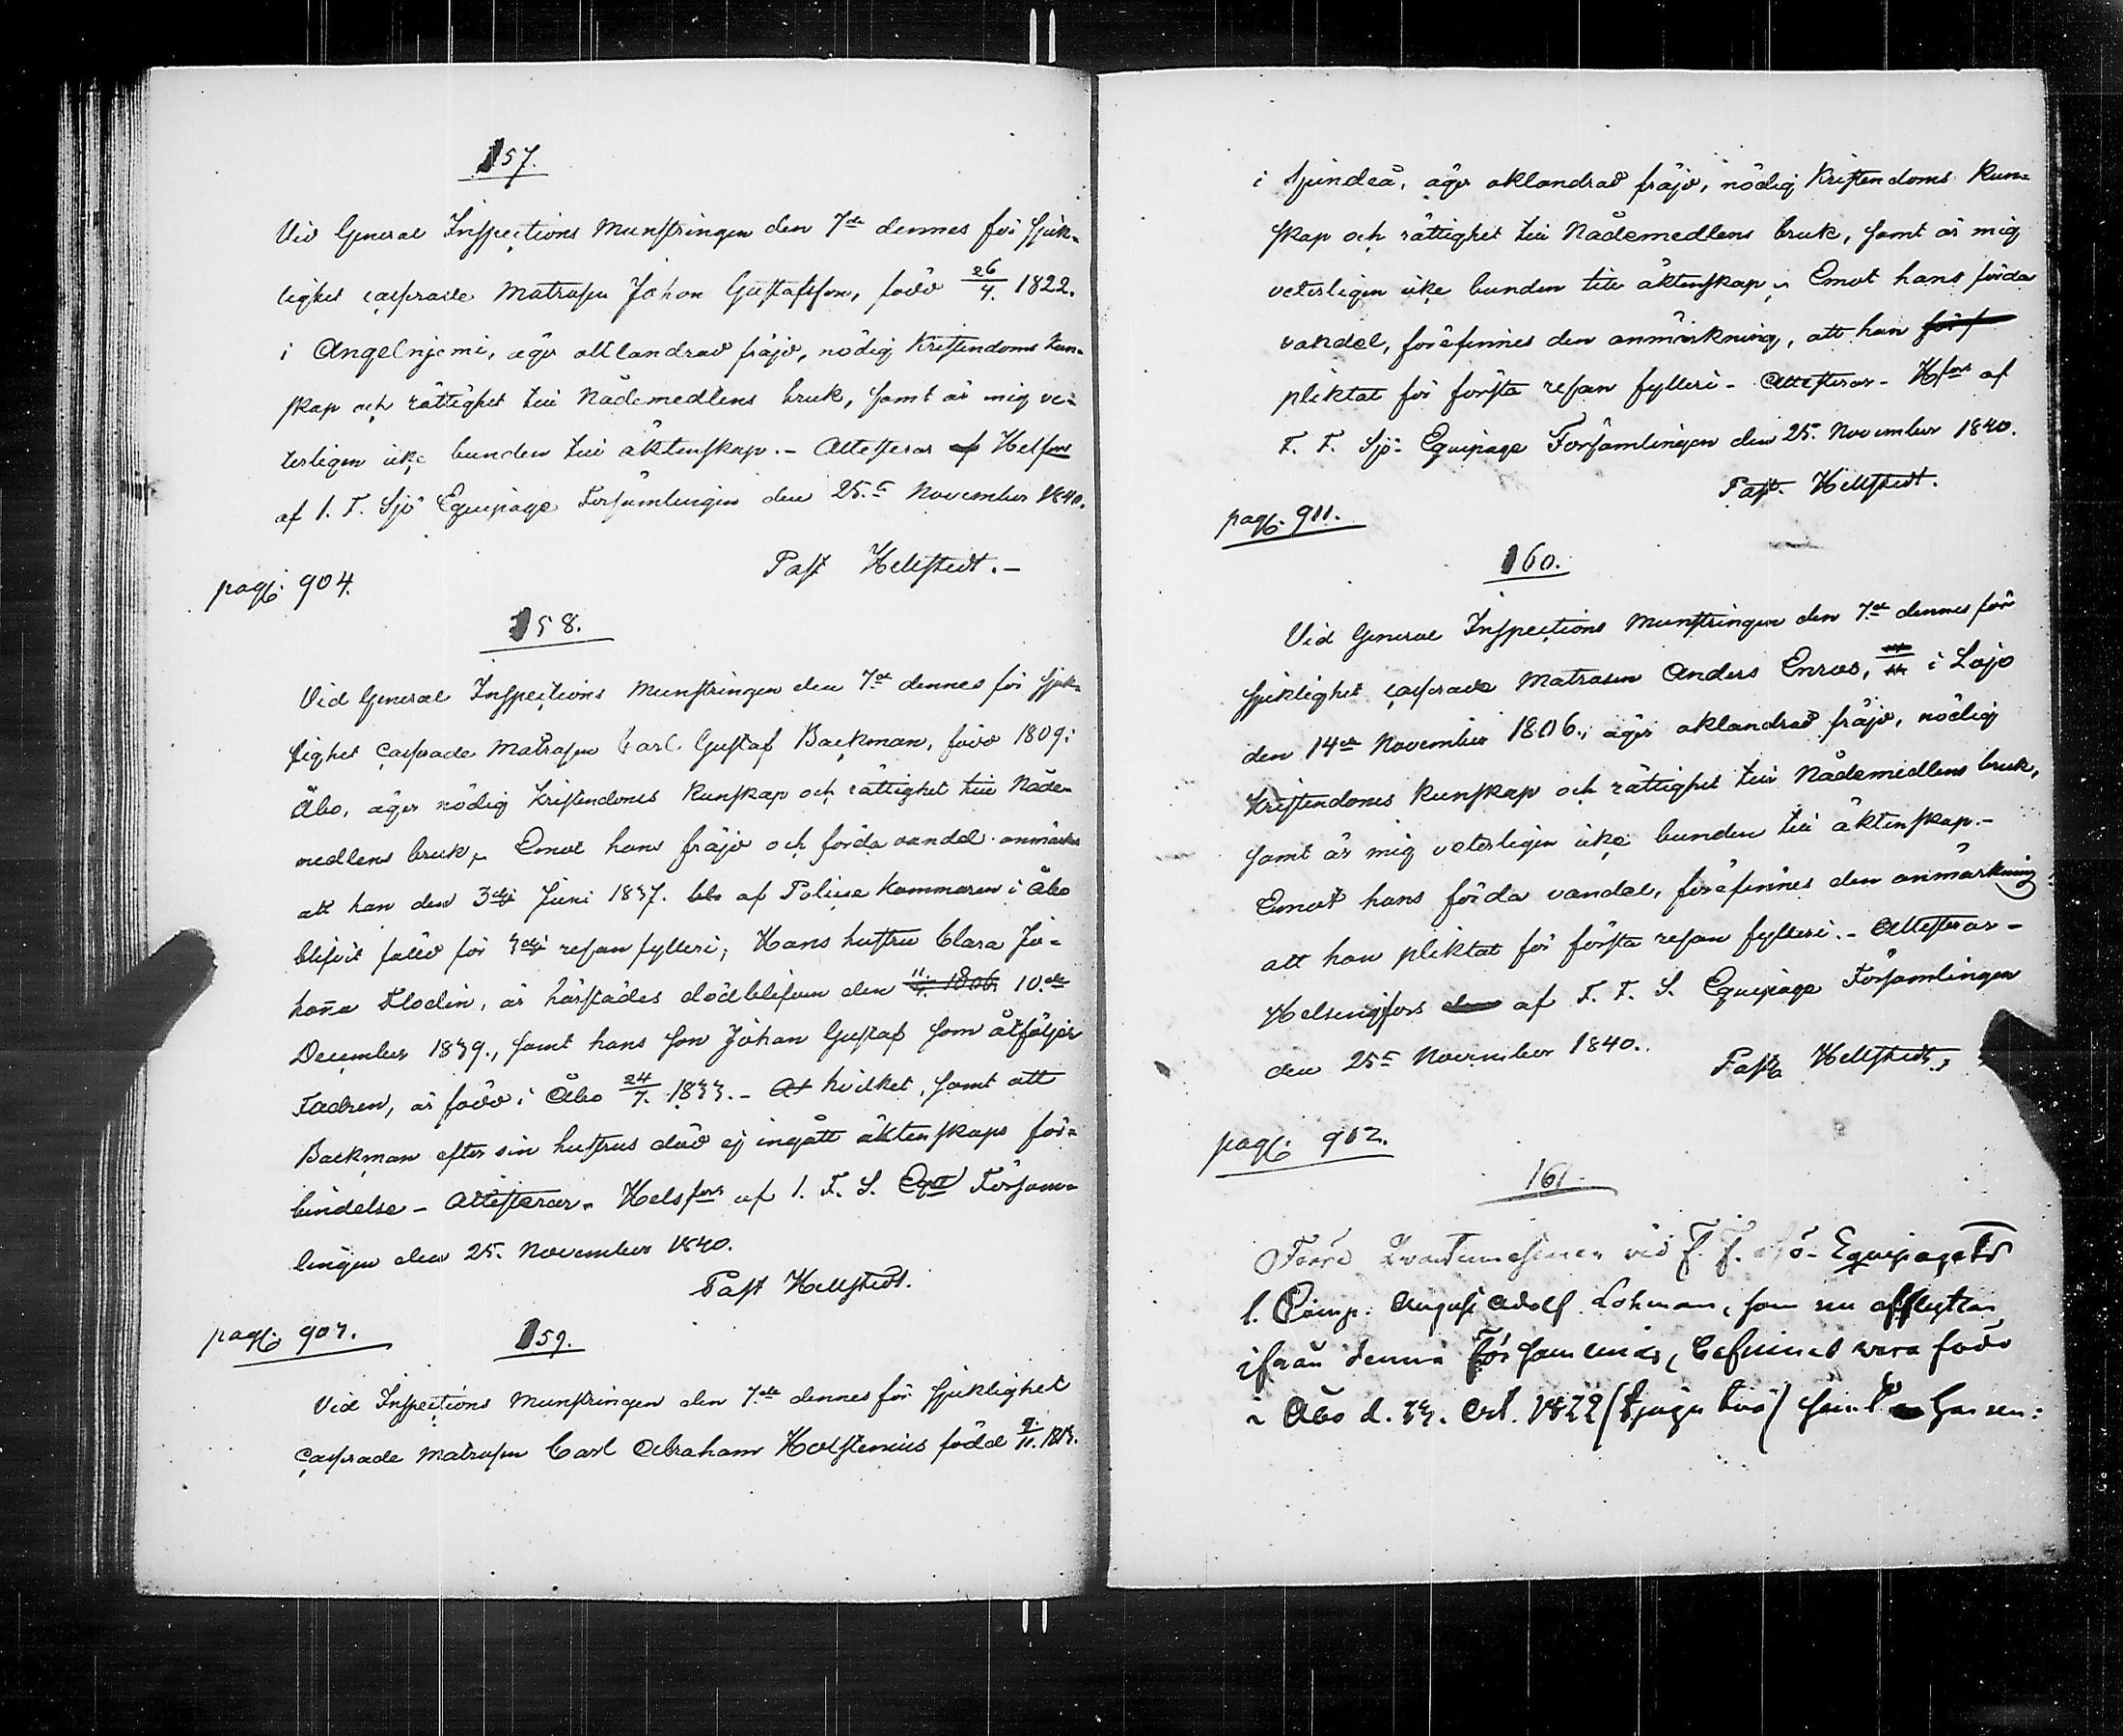 157.
Vid General Inspections Munstringen den 7de dennes för sjuk-
lighet casserade Matrosen Johan Gustafsson, född 26/4. 1822.
i Angelnjemi, äger oklandrad fräjd, nödig Kristendoms kun-
skap och rättighet till Nådemedlens bruk, samt är mig ve-
terligen icke bunden till äktenskap.- Attesteras af Helsfors
af 1. F. Sjö Equipage Församlingen den 25.e November 1840.
Past Hellstedt.-
pag. 904.
158.
Vid General Inspections Munstringen den 7de dennes för sjuk-
lighet casserade Matrosen Carl Gustaf Backman, född 1809 i
Åbo, äger nödig Kristendoms kunskap och rättighet till Nåde-
medlens bruk, Emot hans fräjd och förda vandel anmärkes
att han den 3dje Juni 1837. af Police Kammaren i Åbo
blifvit fäld för 3dje resan fylleri; Hans hustru Clara Jo-
hanna Flodin, är härstädes död blifven den 11/4. 1806. 10.de
December 1839., samt hans son Johan Gustaf som åtföljer
Fadren, är född i Åbo 24/7. 1833.- At hvilket, samt att
Backman efter sin hustrus död ej ingått äktenskaps för-
bindelse - Attesterar. Helsfors af 1. F. S. Eqe Försam-
lingen den 25. November 1840.
Past Hellstedt.
pag. 907.
159.
Vid Inspections Munstringen den 7.de dennes för sjuklighet
casserade Matrosen Carl Abraham Holstenius född 9/11. 1813.
i Sjundeå, äger oklandrad fräjd, nödig Kristendoms kun-
skap och rättighet till Nådemedlens bruk, samt är mig
veterligen icke bunden till äktenskap, Emot hans förda
vandel, förefinnes den anmärkning, att han förs
pliktat för första resan fylleri - Attesteras - Hfors af
F. F. Sjö- Equipage Församlingen den 25. November 1840.
Past. Hellstedt.
pag. 911.
160.
Vid General Inspections Munstringen den 7.de dennes för
sjuklighet casserade Matrosen Anders Enros, i Lojo
den 14de November 1806., äger oklandrad fräjd, nödig
Kristendoms kunskap och rättighet till Nådemedlens bruk,
samt är mig veterligen icke bunden till äktenskap.-
Emot hans förda vandel, förefinnes den anmärkning
att han pliktat för första resan fylleri.- Attesteras -
Helsingfors den af F. F. S. Equipage Församlingen
den 25e November 1840.
Past Hellstedt,
pag. 912.
161.
Förre vid F. F. Sjö- Equipagets
1. Comp. August Adolf Lohman, som nu afflyttar
ifrån denna Församling, befinnes vara född
i Åbo d. 23. Oct. 1822 (tjugu två) samt